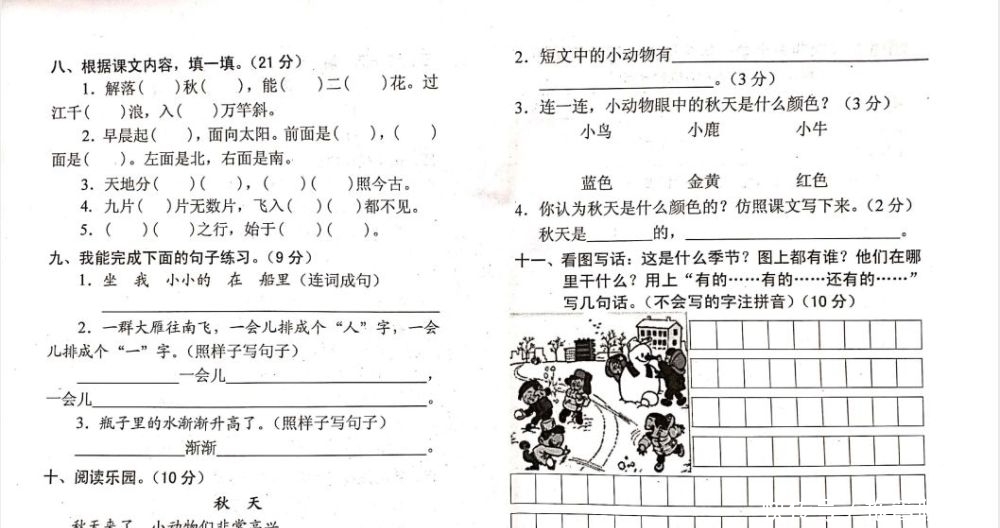 八、根据课文内容，填一填。（21 分）
1. 解落(　　)秋(　　)，能(　　)二(　　)花。过
江千(　　)浪，入(　　)万竿斜。
2. 早晨起(　　)，面向太阳。前面是(　　)，(　　)
面是(　　)。左面是北，右面是南。
3. 天地分(　　)(　　)，(　　)(　　)照今古。
4. 九片(　　)片无数片，飞入(　　)(　　)都不见。
5. (　　)(　　)之行，始于(　　)(　　)。
九、我能完成下面的句子练习。（9 分）
1. 坐　我　小小的　在　船里（连词成句）
2. 一群大雁往南飞，一会儿排成个“人”字，一会
儿排成个“一”字。（照样子写句子）
____________一会儿________________________，
一会儿________________________________________。
3. 瓶子里的水渐渐升高了。（照样子写句子）
________________渐渐________________________。
十、阅读乐园。（10 分）
秋　天
秋天来了，小动物们非常高兴
2. 短文中的小动物有______________________________
________________________。（3 分）
3. 连一连，小动物眼中的秋天是什么颜色？（3 分）
小鸟　　小鹿　　小牛
蓝色　　金黄　　红色
4. 你认为秋天是什么颜色的？仿照课文写下来。（2 分）
秋天是________的，________________________。
十一、看图写话：这是什么季节？图上都有谁？他们在哪
里干什么？用上“有的……有的……还有的……”
写几句话。（不会写的字注拼音）（10 分）